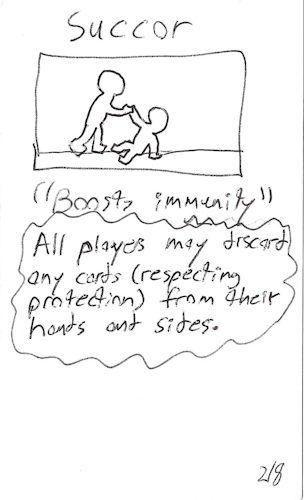 Succor
"Boosts immunity"
All players may discard
any cards (respecting
protection) from their
hands and sides.
2/8